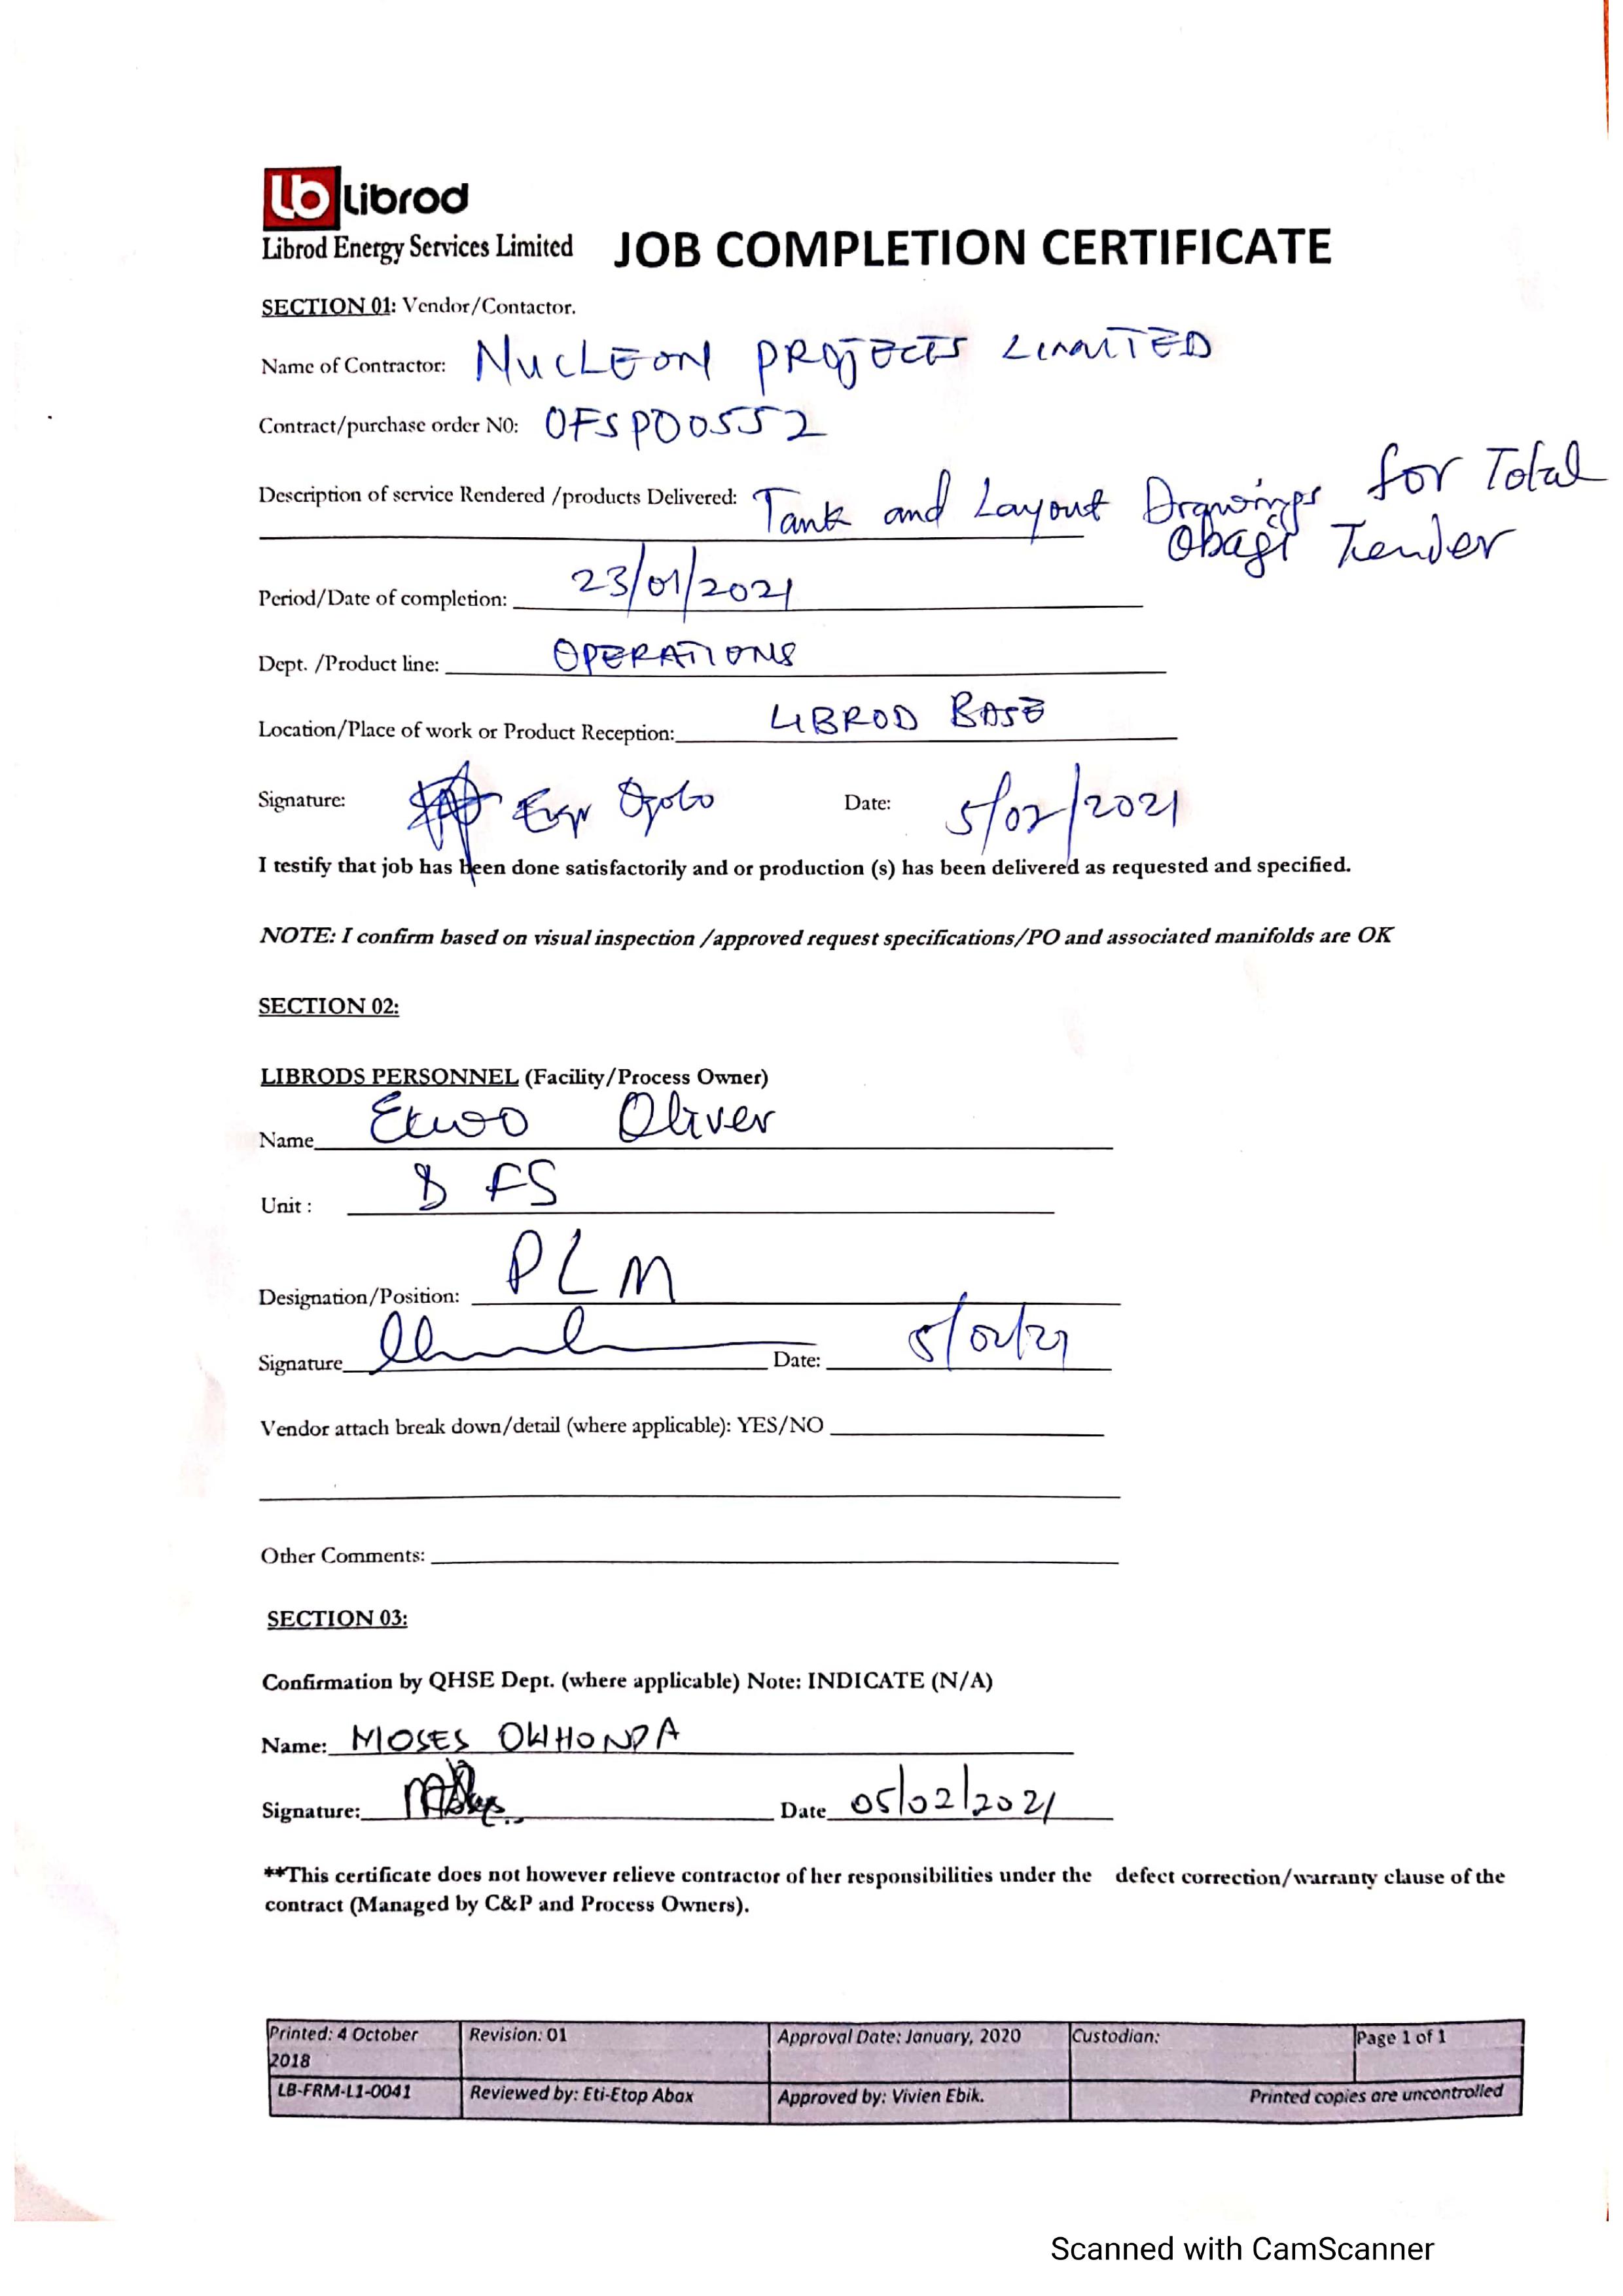 lb Librod
Librod Energy Services Limited JOB COMPLETION CERTIFICATE
SECTION 01: Vendor/Contactor.
Name of Contractor: NUCLEON PROJECTS LIMITED
Contract/purchase order N0: OFSPO0552
Description of service Rendered /products Delivered: Tank and Layout Drawings for Total
Obagi Tender
Period/Date of completion: 23/01/2021
Dept. /Product line: OPERATIONS
Location/Place of work or Product Reception: LIBROD BASE
Signature: Date: 5/02/2021
I testify that job has been done satisfactorily and or production (s) has been delivered as requested and specified.
NOTE: I confirm based on visual inspection /approved request specifications/PO and associated manifolds are OK
SECTION 02:
LIBRODS PERSONNEL (Facility/Process Owner)
Name Oliver
Unit : FS
Designation/Position: PLM
Signature Date: 5/02/21
Vendor attach break down/detail (where applicable): YES/NO
Other Comments:
SECTION 03:
Confirmation by QHSE Dept. (where applicable) Note: INDICATE (N/A)
Name: MOSES OWHONDA
Signature: Date 05/02/2021
**This certificate does not however relieve contractor of her responsibilities under the defect correction/warranty clause of the
contract (Managed by C&P and Process Owners).
Printed: 4 October 2018 Revision: 01 Approval Date: January, 2020 Custodian: Page 1 of 1
LB-FRM-L1-0041 Reviewed by: Eti-Etop Abax Approved by: Vivien Ebik. Printed copies are uncontrolled
Scanned with CamScanner